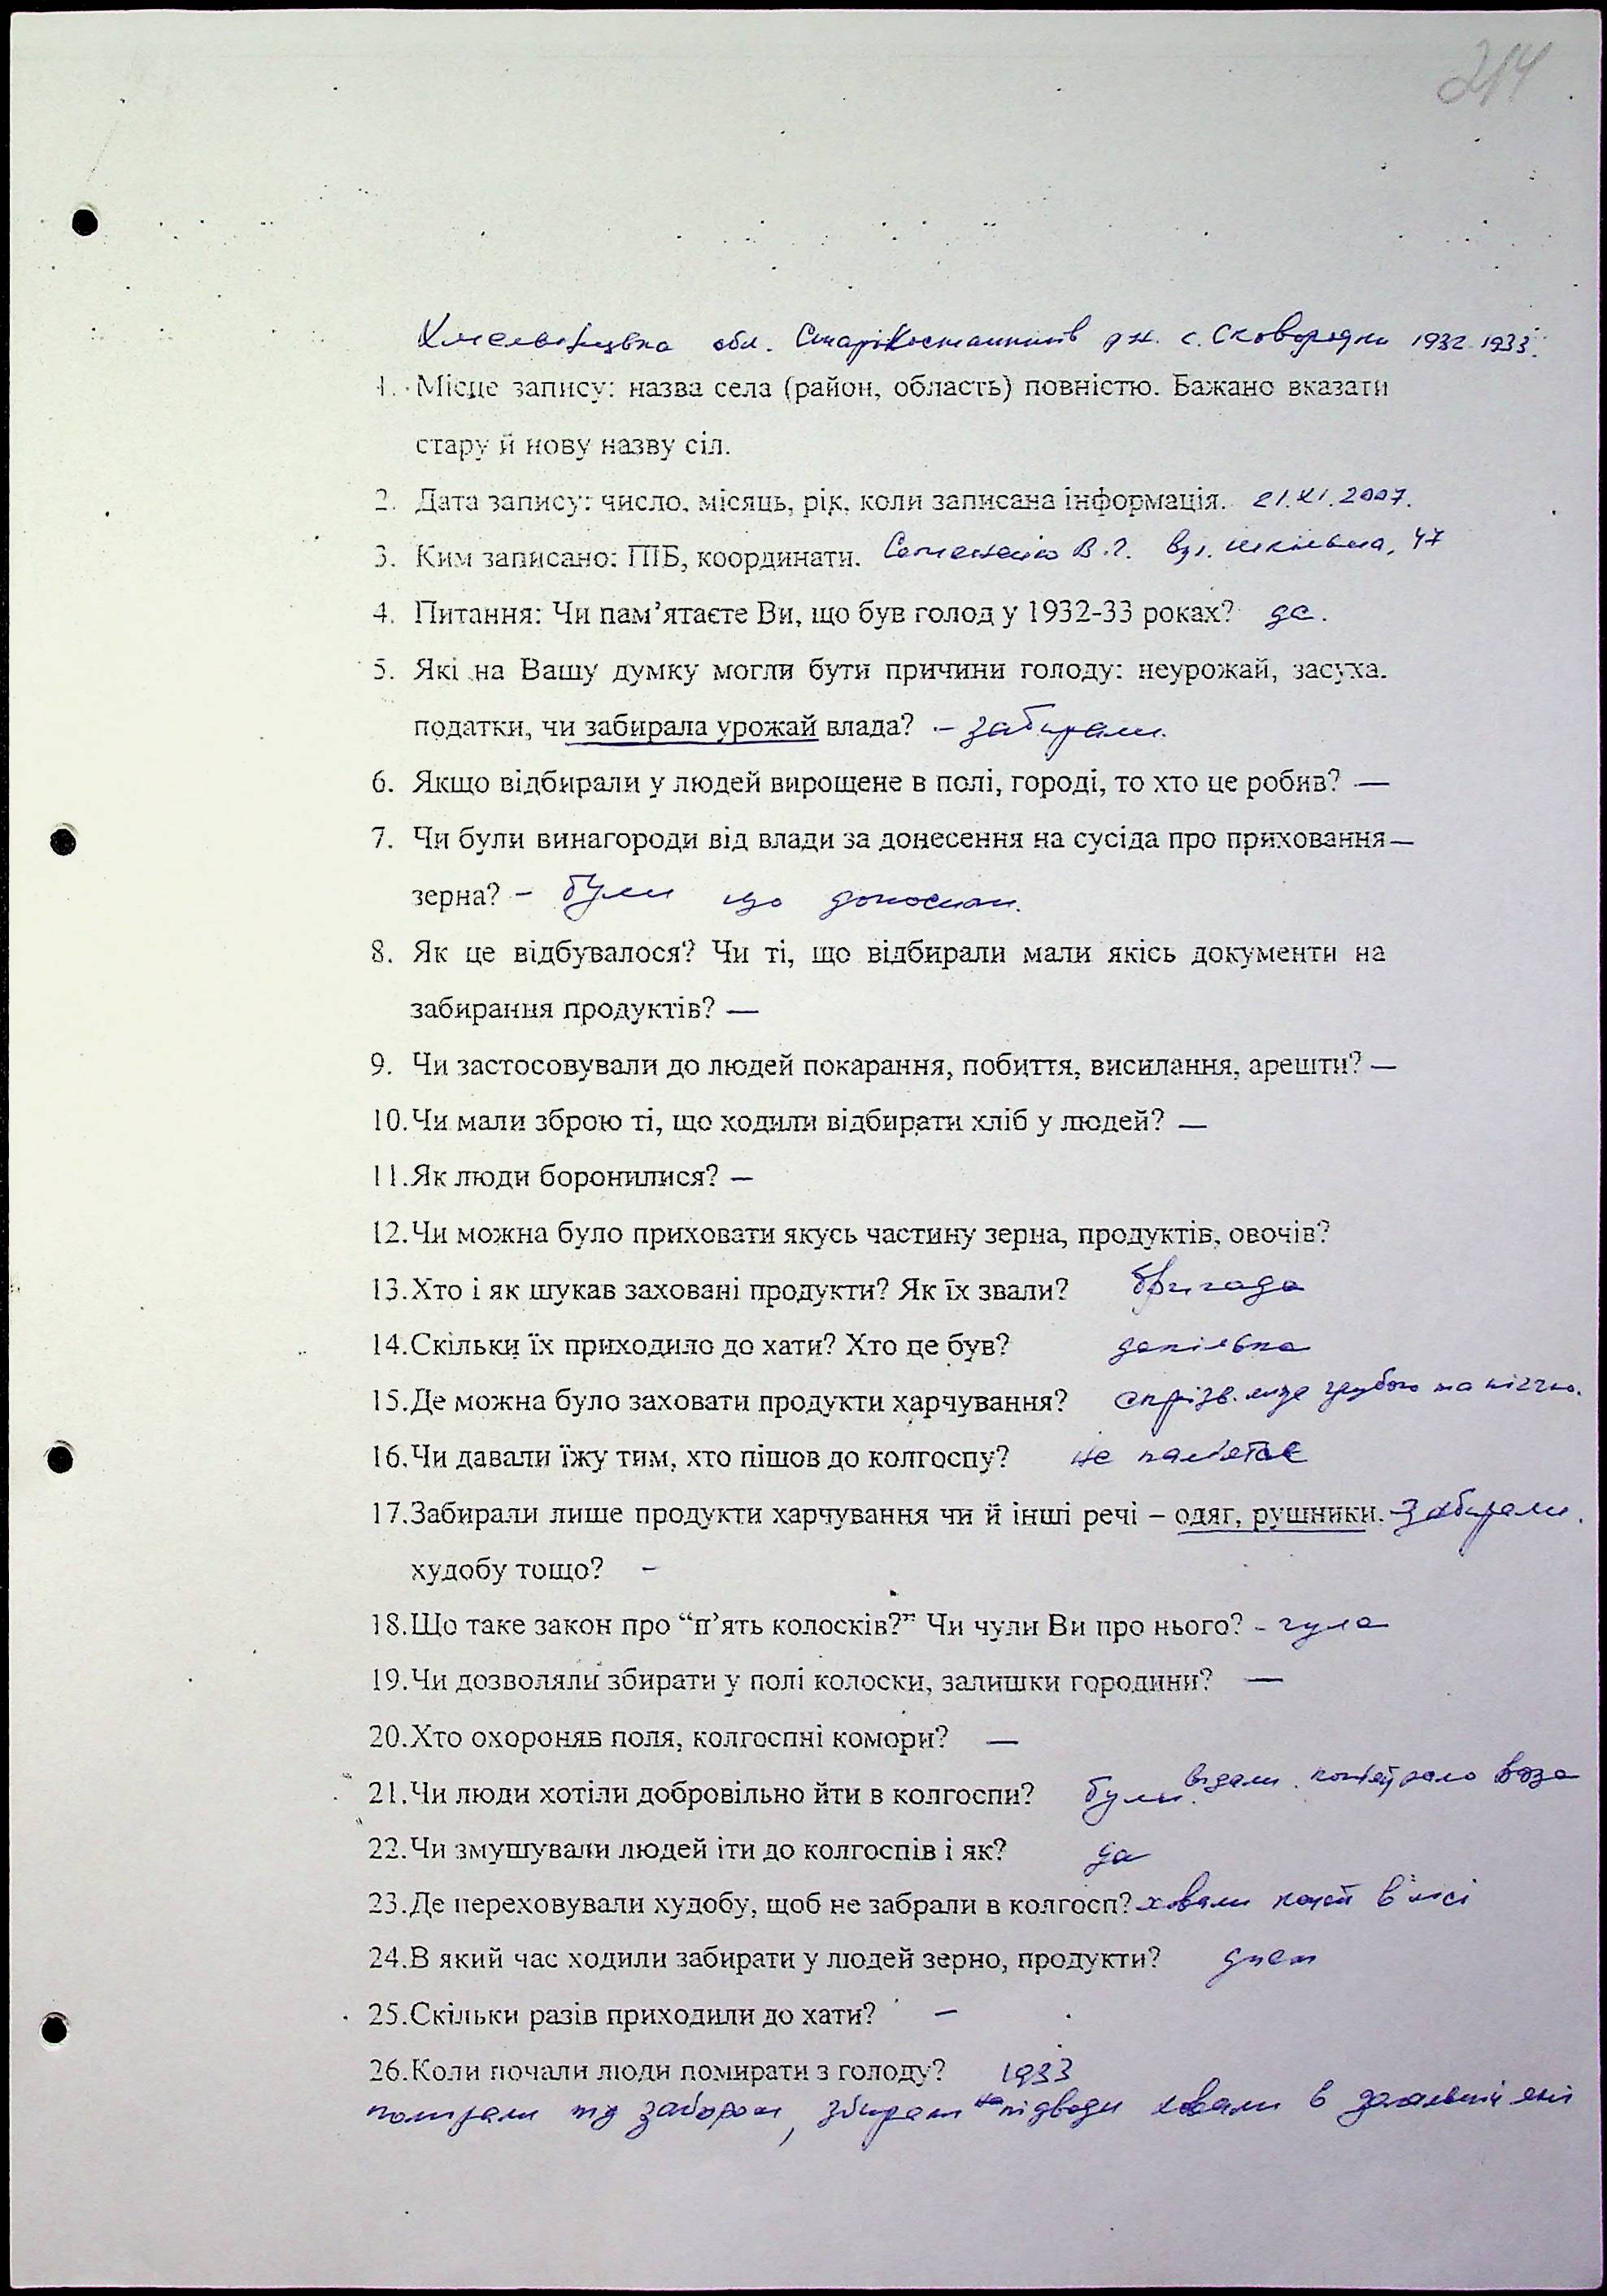 214
Хмельницька обл. СтаріКостантинів р-н. с. Сковородки 1932-1933.
1. Місце запису: назва села (район, область) повністю. Бажано вказати
стару й нову назву сіл.
2. Дата запису: число, місяць, рік, коли записана інформація. 21.XI.2007.
3. Ким записано: ПІБ, координати. В.Г. вул. шкільна, 47
4. Питання: Чи пам’ятаєте Ви, що був голод у 1932-33 роках? да.
5. Які на Вашу думку могли бути причини голоду: неурожай, засуха.
податки, чи забирала урожай влада? – забирали.
6. Якщо відбирали у людей вирощене в полі, городі, то хто це робив? —
7. Чи були винагороди від влади за донесення на сусіда про приховання —
зерна? – були що доносили.
8. Як це відбувалося? Чи ті, що відбирали мали якісь документи на
забирання продуктів? —
9. Чи застосовували до людей покарання, побиття, висилання, арешти? —
10. Чи мали зброю ті, що ходили відбирати хліб у людей? —
11. Як люди боронилися? —
12. Чи можна було приховати якусь частину зерна, продуктів, овочів?
13. Хто і як шукав заховані продукти? Як їх звали? бригада
14. Скільки їх приходило до хати? Хто це був? декілька
15. Де можна було заховати продукти харчування? грубою та піччю.
16. Чи давали їжу тим, хто пішов до колгоспу? не пам'ятає
17. Забирали лише продукти харчування чи й інші речі – одяг, рушники. забирали.
худобу тощо? –
18. Що таке закон про “п’ять колосків?” Чи чули Ви про нього? - чула
19. Чи дозволяли збирати у полі колоски, залишки городини? —
20. Хто охороняв поля, колгоспні комори? —
21. Чи люди хотіли добровільно йти в колгоспи? були. воза
22. Чи змушували людей іти до колгоспів і як? да
23. Де переховували худобу, щоб не забрали в колгосп? ховали коней в лісі
24. В який час ходили забирати у людей зерно, продукти? днем
25. Скільки разів приходили до хати? –
26. Коли почали люди помирати з голоду? 1933
помирали під забором, збирали на підводи ховали в загальній ямі